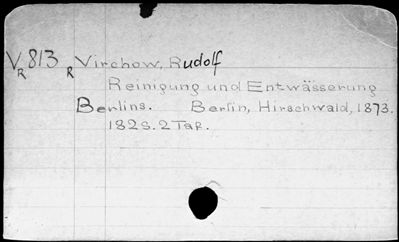 VR 813 R Virchow, Rudolf
Reinigung und Entwässerung
Berlins. Berlin, Hirschwald, 1873.
182 S. 2 Taf.